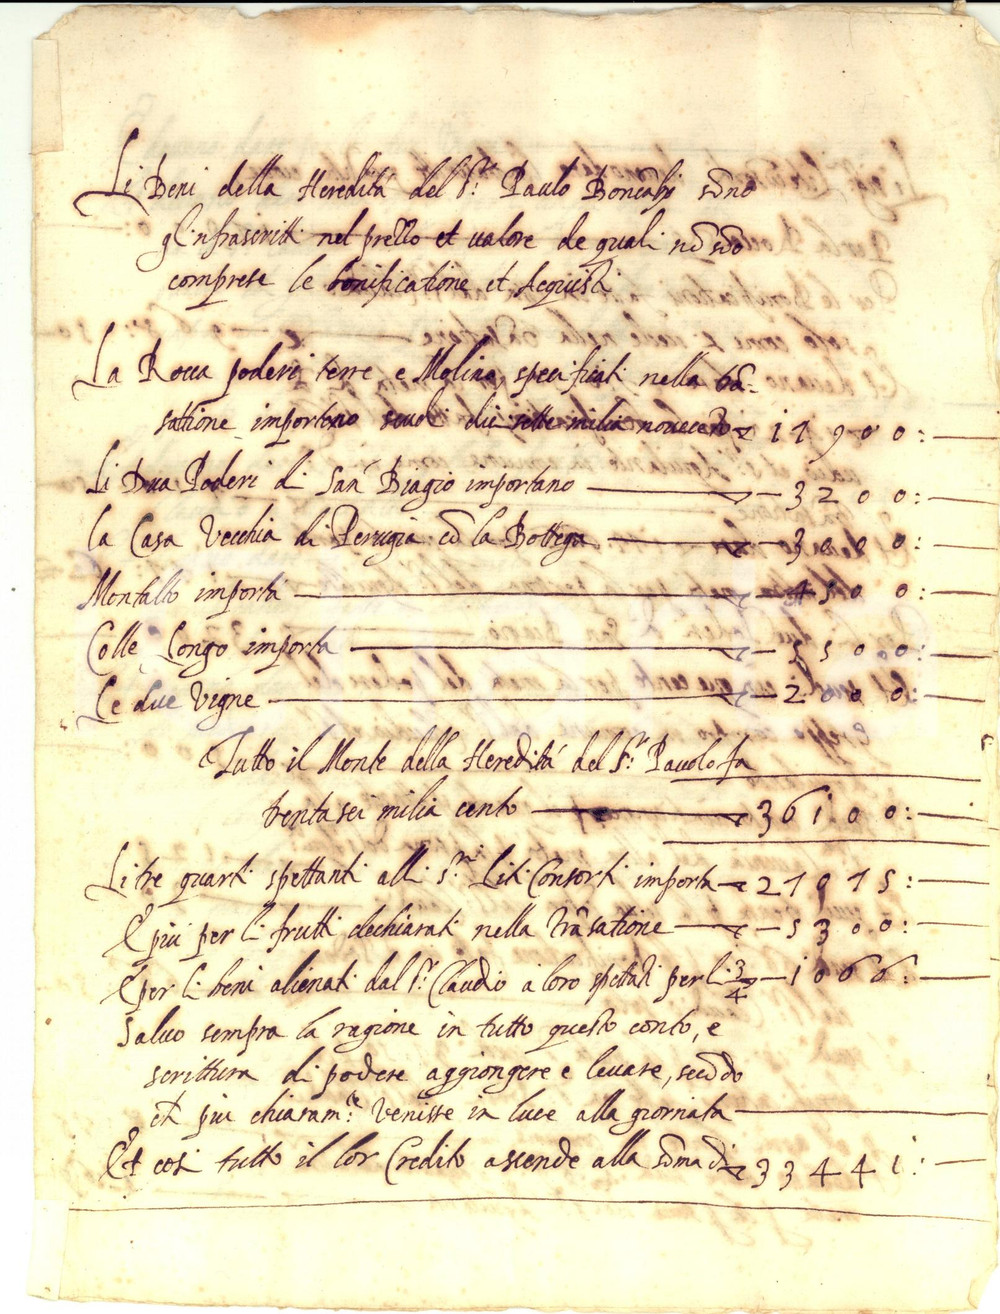 Li Beni della Heredità del S.r Paulo Boncābi sōno
gl'infrascritti nel prezzo et valore de quali nō sōo
comprese le bonificatione et Acquisti
La Rocca poderi terre e Molino specificati nella trā-
satione importano scudi dicisette milia novecēto 17900:
Li Dua Poderi di San Biagio importano 3200:
la Casa Vecchia di Perugia cō la Bottega 3000:
Montalto importa 4500:
Colle Longo importa 5500:
Le due Vigne 2000:
Tutto il Monte della Heredità del S.r Pavolo fa
trenta sei milia cento 36100:
Li tre quarti spettanti alli S.ri Liti Consorti importa 27075:
E più per li frutti dechiarati nella trāsatione 5300:
E per li beni alienati dal S.r Claudio a loro spettāti per li 3/4 1066:
Salvo sempra la ragione in tutto questo conto, e
scrittura di podere aggiongere e levare, secōdo
ch più chiaram.te venisse in luce alla giornata
Et così tutto il lor Credito ascende alla sōma di 33441: